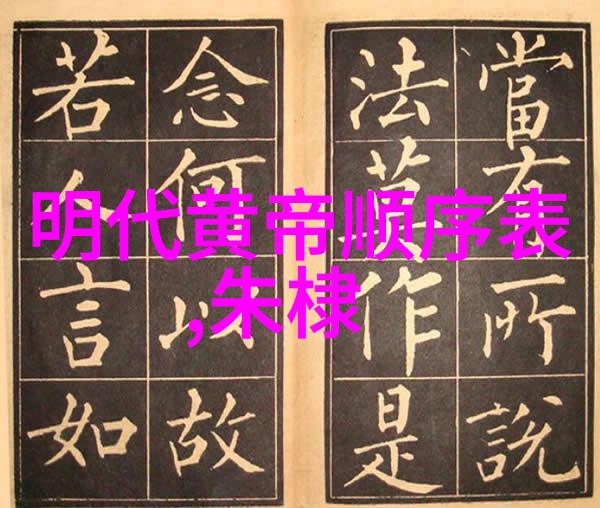 當有所說
法莫作是
念何以故
若人言如
明代黄帝顺序表
,朱棣